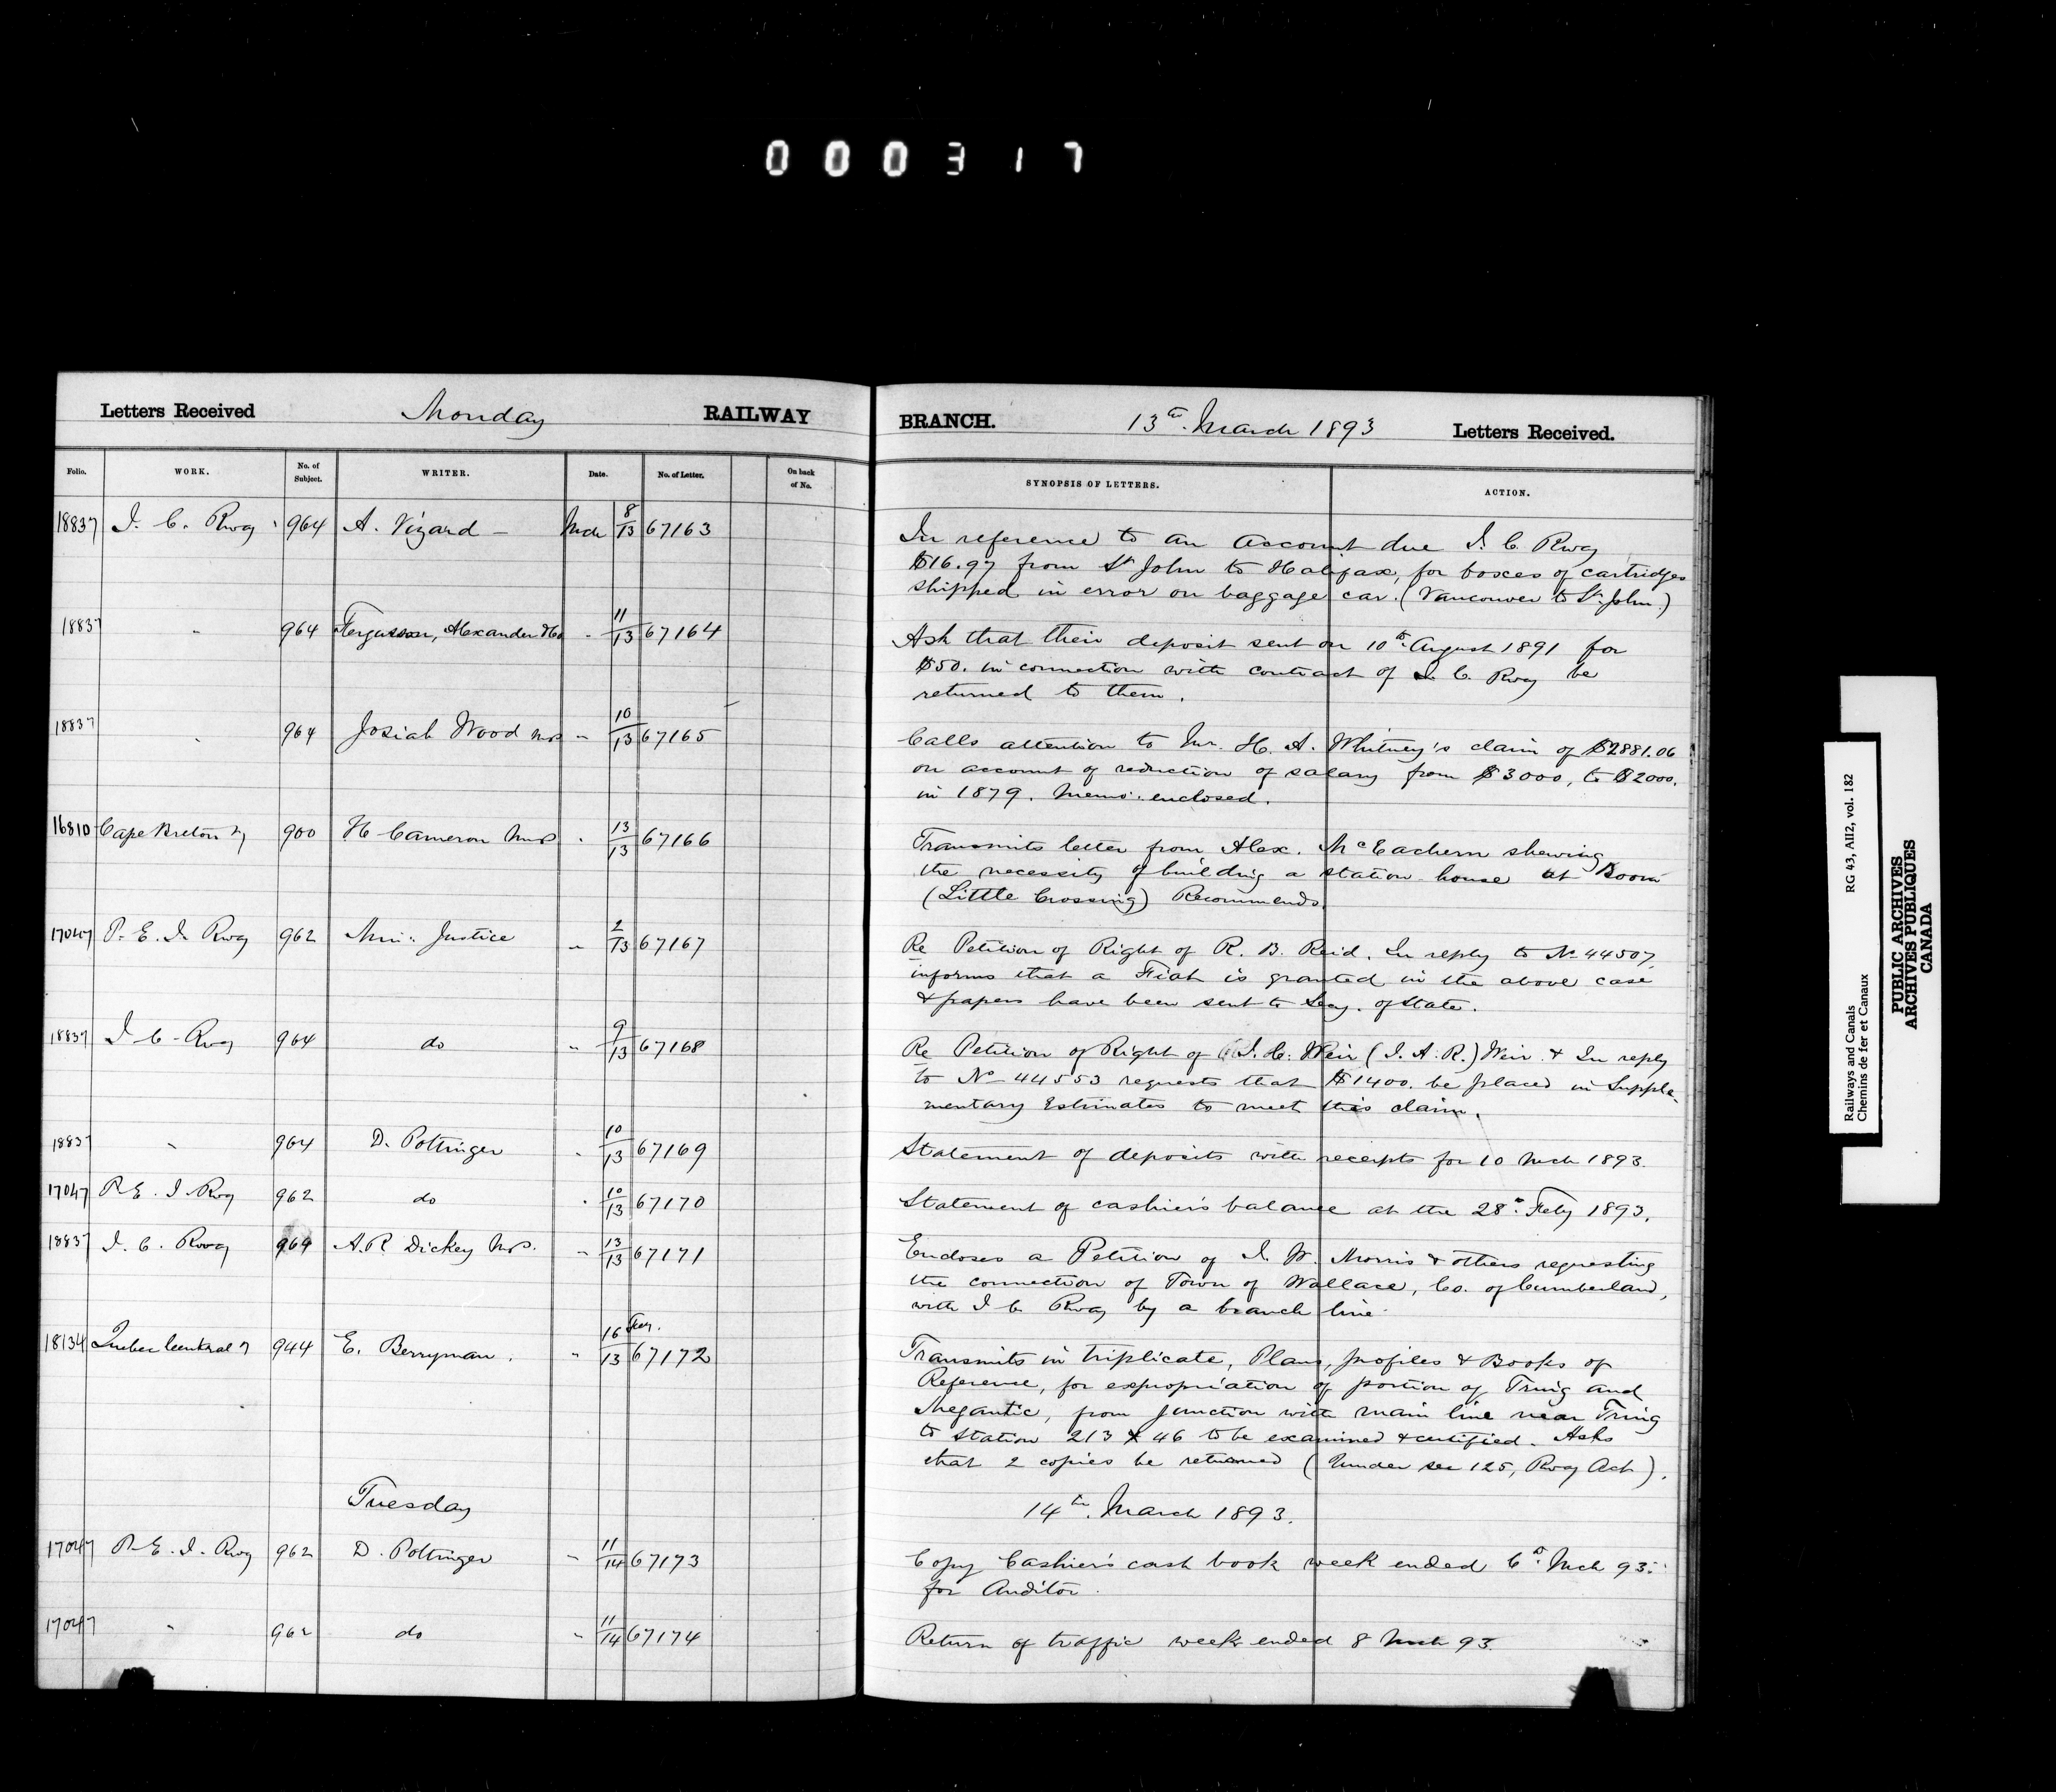 0 0 0 3 1 7
Letters Received Monday RAILWAY BRANCH. 13th. March 1893 Letters Received.
Folio. WORK. No. of Subject. WRITER. Date. No. of Letter. On back of No. SYNOPSIS OF LETTERS. ACTION.
18837 I. C. Rwy 964 A. Vizard - Mch 8/13 67163 In reference to an account due I. C. Rwy
$16.97 from St John to Halifax, for boxes of cartridges
shipped in error on baggage car. (Vancouver to St. John.)
18837 " 964 Fergusson, Alexander &Co " 11/13 67164 Ask that their deposit sent on 10th. August 1891 for
$50. in connection with contract of I. C. Rwy be
returned to them.
18837 " 964 Josiah Wood MP " 10/13 67165 Calls attention to Mr. H. A. Whitney's claim of $2881.06
on account of reduction of salary from $3000, to $2000.
in 1879. Memo. enclosed.
16810 Cape Breton Ry 900 H Cameron MP " 13/13 67166 Transmits letter from Alex. McEachern shewing
the necessity of building a station house at Boom
(Little Crossing) Recommends.
17047 P. E. I. Rwy 962 Min. Justice " 2/13 67167 Re Petition of Right of R. B. Reid. In reply to No 44507,
informs that a Fiat is granted in the above case
& papers have been sent to Secy. of State.
18837 I C Rwy 964 do " 9/13 67168 Re Petition of Right of J. H. Weir (I. A. R.) Weir. & In reply
to No 44553 requests that $1400. be placed in Supple-
mentary Estimates to meet this claim.
18837 " 964 D. Pottinger " 10/13 67169 Statement of deposits with receipts for 10 Mch 1893.
17047 P. E. I Rwy 962 do " 10/13 67170 Statement of cashier's balance at the 28th. Feby 1893.
18837 I. C. Rwy 964 A. R Dickey M.P. " 13/13 67171 Encloses a Petition of I. W. Morris & others requesting
the connection of Town of Wallace, Co. of Cumberland,
with I C Rwy by a branch line
18134 Quebec Central Ry 944 E. Berryman. " 16 Fey./13 67172 Transmits in triplicate, Plans, profiles & Books of
Reference, for expropriation of portion of Tring and
Megantic, from junction with main line near Tring
to station 213 X 46 to be examined & certified. Asks
that 2 copies be returned (Under sec 125, Rwy Act).
Tuesday 14th. March 1893.
17047 P. E. I. Rwy 962 D. Pottinger " 11/14 67173 Copy Cashier's cash book week ended 6th. Mch 93.
for Auditor.
17047 " 962 do " 11/14 67174 Return of traffic week ended 8 Mch 93.
Railways and Canals RG 43, AII2, vol. 182
Chemins de fer et Canaux
PUBLIC ARCHIVES
ARCHIVES PUBLIQUES
CANADA